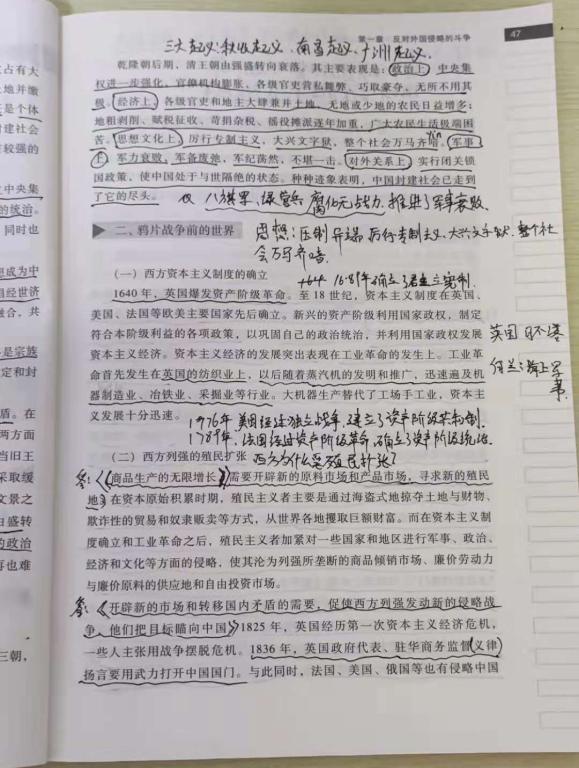 第一章 反对外国侵略的斗争
47
三大起义:秋收起义、南昌起义、广州起义.
乾隆朝后期，清王朝由强盛转向衰落。其主要表现是：政治上，中央集
权进一步强化，官僚机构膨胀、各级官吏营私舞弊、巧取豪夺，无所不用其
极。经济上，各级官吏和地主大肆兼并土地，无地或少地的农民日益增多；
地租剥削、赋税征收、苛捐杂税、徭役摊派逐年加重，广大农民生活极端困
苦。思想文化上，厉行专制主义，大兴文字狱，整个社会万马齐喑。军事
yin
上，军力衰败，军备废弛，军纪荡然，不堪一击。对外关系上，实行闭关锁
国政策，使中国处于与世隔绝的状态。种种迹象表明，中国封建社会已走到
了它的尽头。
八旗军、绿营兵 腐化无战力 推进了军事衰败
二、鸦片战争前的世界
思想:压制异端 厉行专制主义、大兴文字狱 整个社
会万马齐喑.
（一）西方资本主义制度的确立
1689年确立了君主立宪制
1640 年，英国爆发资产阶级革命。至 18 世纪，资本主义制度在英国、
美国、法国等欧美主要国家先后确立。新兴的资产阶级利用国家政权，制定
符合本阶级利益的各项政策，以巩固自己的政治统治，并利用国家政权发展
资本主义经济。资本主义经济的发展突出表现在工业革命的发生上。工业革
命首先发生在英国的纺织业上，以后随着蒸汽机的发明和推广，迅速遍及机
器制造业、冶铁业、采掘业等行业。大机器生产替代了工场手工业，资本主
义发展十分迅速。
英国 日不落
荷兰 海上
1976年.美国经过独立战争.建立了资产阶级共和制.
1789年.法国经过资产阶级革命.确立了资产阶级统治.
（二）西方列强的殖民扩张
西方为什么要殖民扩张?
商品生产的无限增长，需要开辟新的原料市场和产品市场，寻求新的殖民
地。在资本原始积累时期，殖民主义者主要是通过海盗式地掠夺土地与财物、
欺诈性的贸易和奴隶贩卖等方式，从世界各地攫取巨额财富。而在资本主义制
度确立和工业革命之后，殖民主义者加紧对一些国家和地区进行军事、政治、
经济和文化等方面的侵略，使其沦为列强所垄断的商品倾销市场、廉价劳动力
与廉价原料的供应地和自由投资市场。
开辟新的市场和转移国内矛盾的需要，促使西方列强发动新的侵略战
争，他们把目标瞄向中国。1825 年，英国经历第一次资本主义经济危机，
一些人主张用战争摆脱危机。1836 年，英国政府代表、驻华商务监督义律
扬言要用武力打开中国国门。与此同时，法国、美国、俄国等也有侵略中国